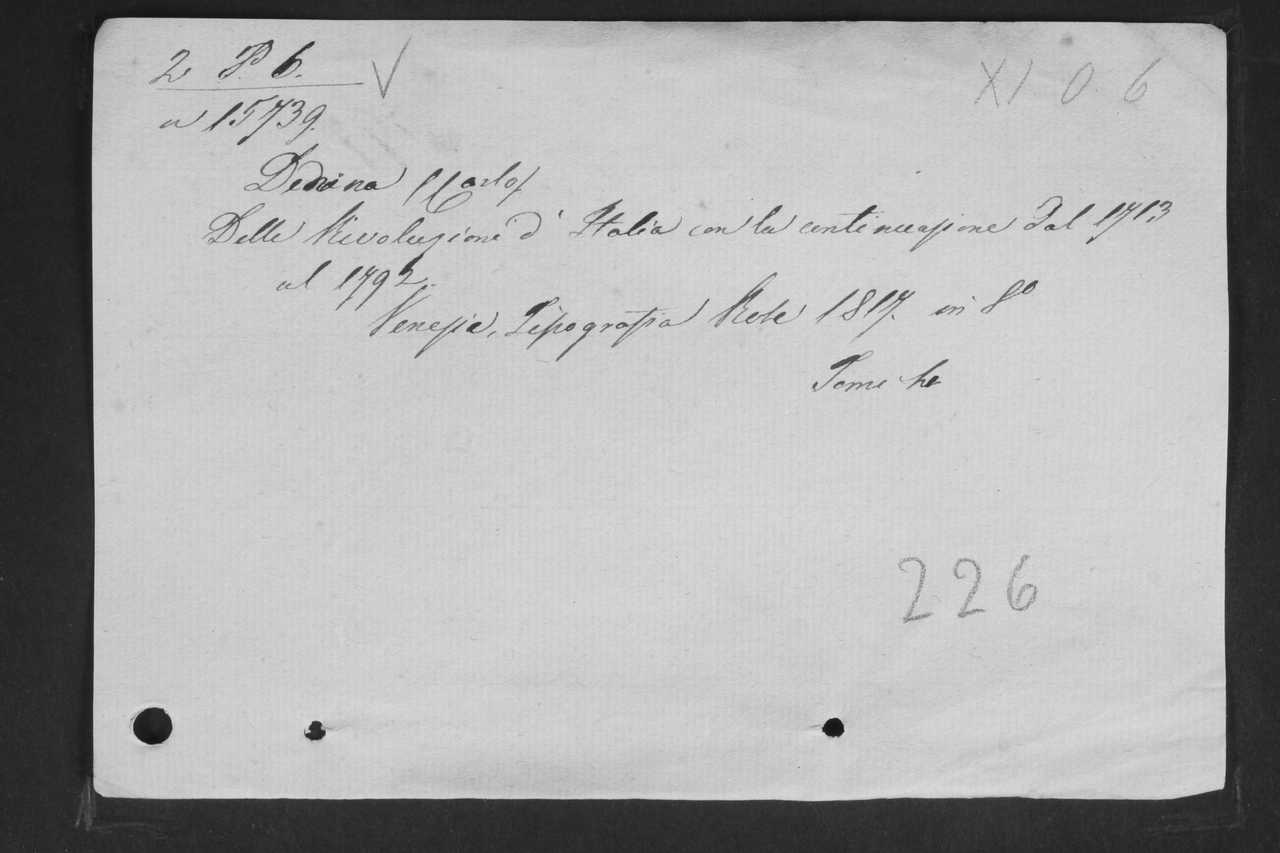 2 P. 6. XI O. 6
a 15739.
Denina (Carlo)
Delle Rivoluzione d' Italia con la continuazione dal 1713
al 1792.
Venezia, Tipografia 1817. in 8º
Tomi
226